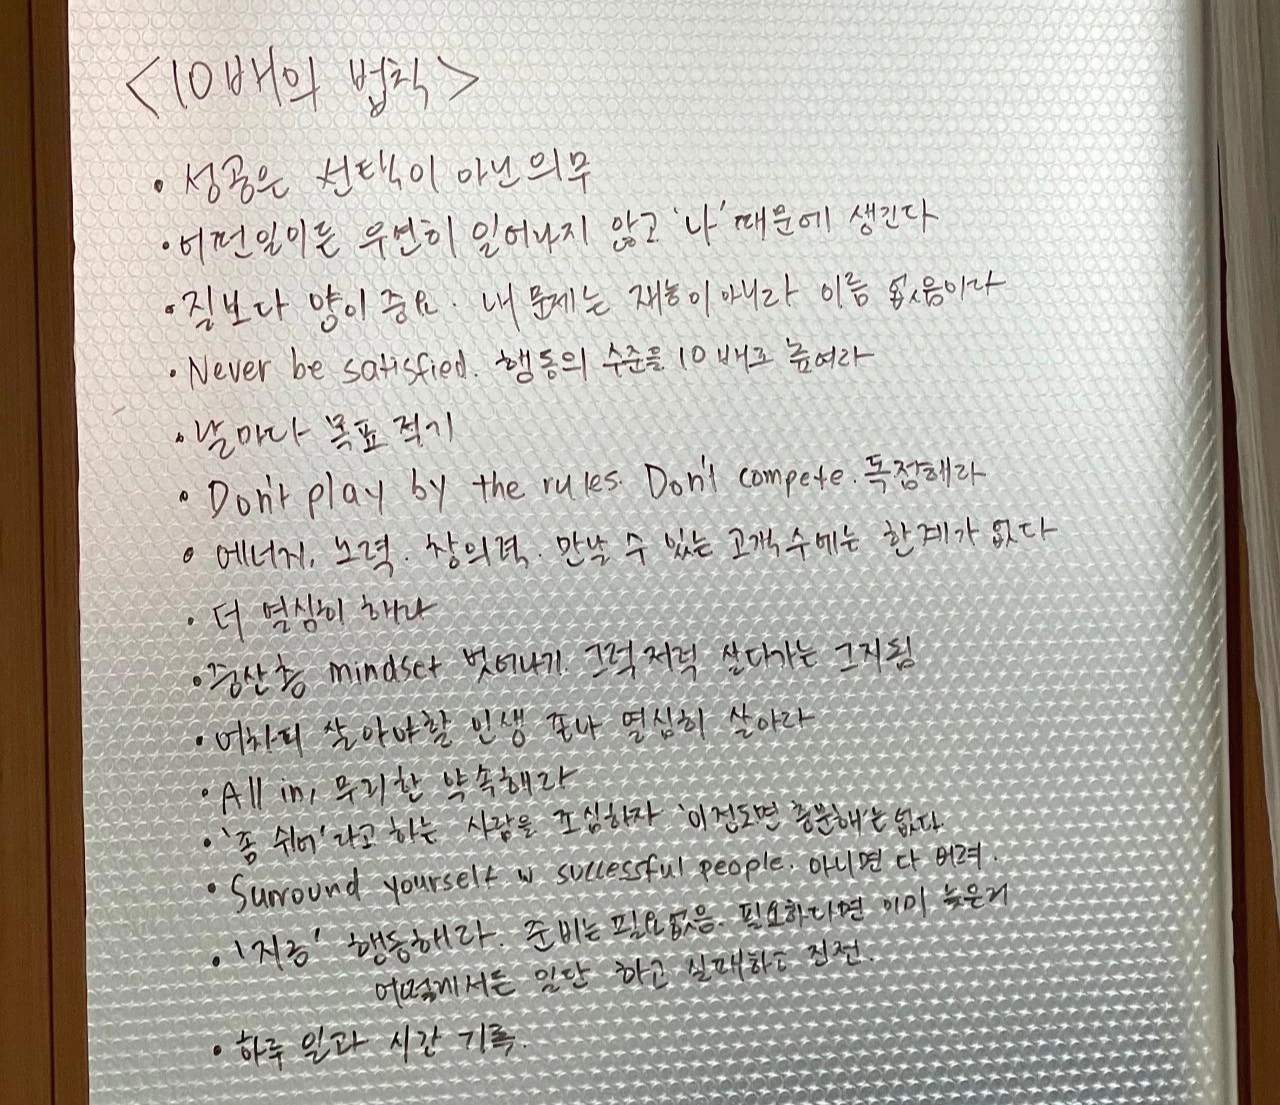 <10배의 법칙>
· 성공은 선택이 아닌 의무
· 어떤일이든 우연히 일어나지 않고 '나' 때문에 생긴다
· 질보다 양이 중요. 내 문제는 재능이 아니라 이름 없음이다
· Never be satisfied. 행동의 수준을 10배로 높여라
· 날마다 목표 적기
· Don't play by the rules. Don't compete. 독점해라
· 에너지, 노력. 창의력. 만날 수 있는 고객수에는 한계가 없다
· 더 열심히 해라
· 중산층 mindset 벗어나기. 그럭저럭 살다가는 그지됨
· 어차피 살아야할 인생 존나 열심히 살아라
· All in, 무리한 약속해라
· '좀 쉬어'라고 하는 사람을 조심하자 '이정도면 충분해'는 없다.
· Surround yourself w successful people. 아니면 다 버려.
· '지금' 행동해라. 준비는 필요없음. 필요하다면 이미 늦은거
어떻게서든 일단 하고 실패하고 전전.
· 하루 일과 시간 기록.